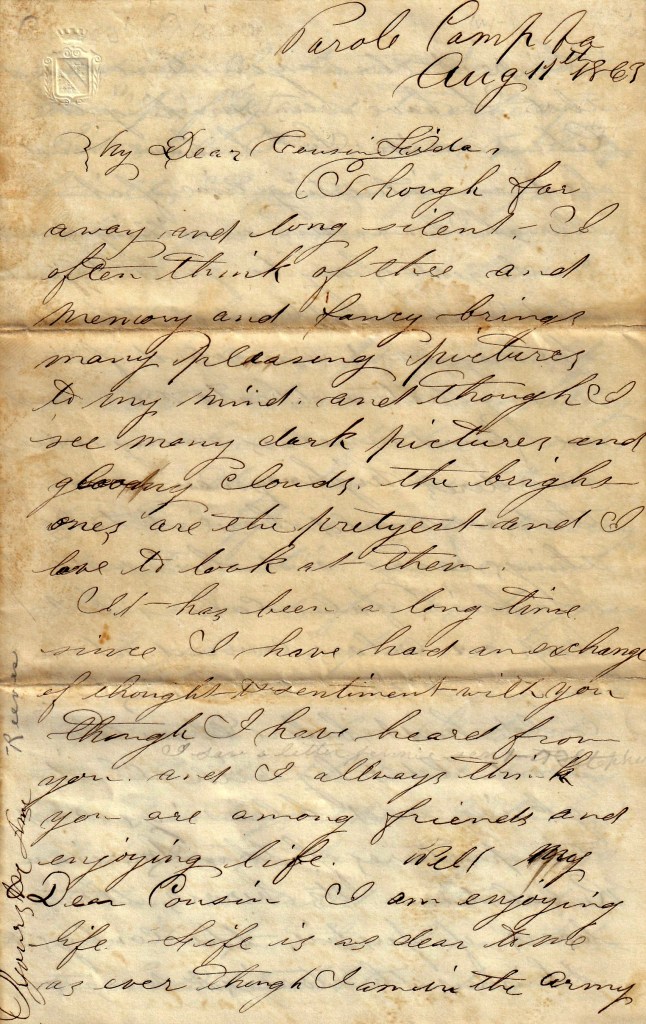 Parole Camp
Aug 11th 1863
My Dear Cousin Lida,
Though far
away and long silent - I
often think of thee and
memory and fancy brings
many pleasing pictures
to my mind. and though I
see many dark pictures and
gloomy clouds. the bright
ones are the pretyest and I
love to look at them.
It has been a long time
since I have had an exchange
of thought & sentiment with you
though I have heard from
you. and I allways think
you are among friends and
enjoying life. Well my
Dear Cousin I am enjoying
life Life is as dear to me
as ever though I am in the army
Yours
Reeves